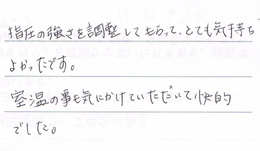 指圧の強さを調整してもらって、とても気持ち
よかったです。
室温の事も気にかけていただいて快的
でした。